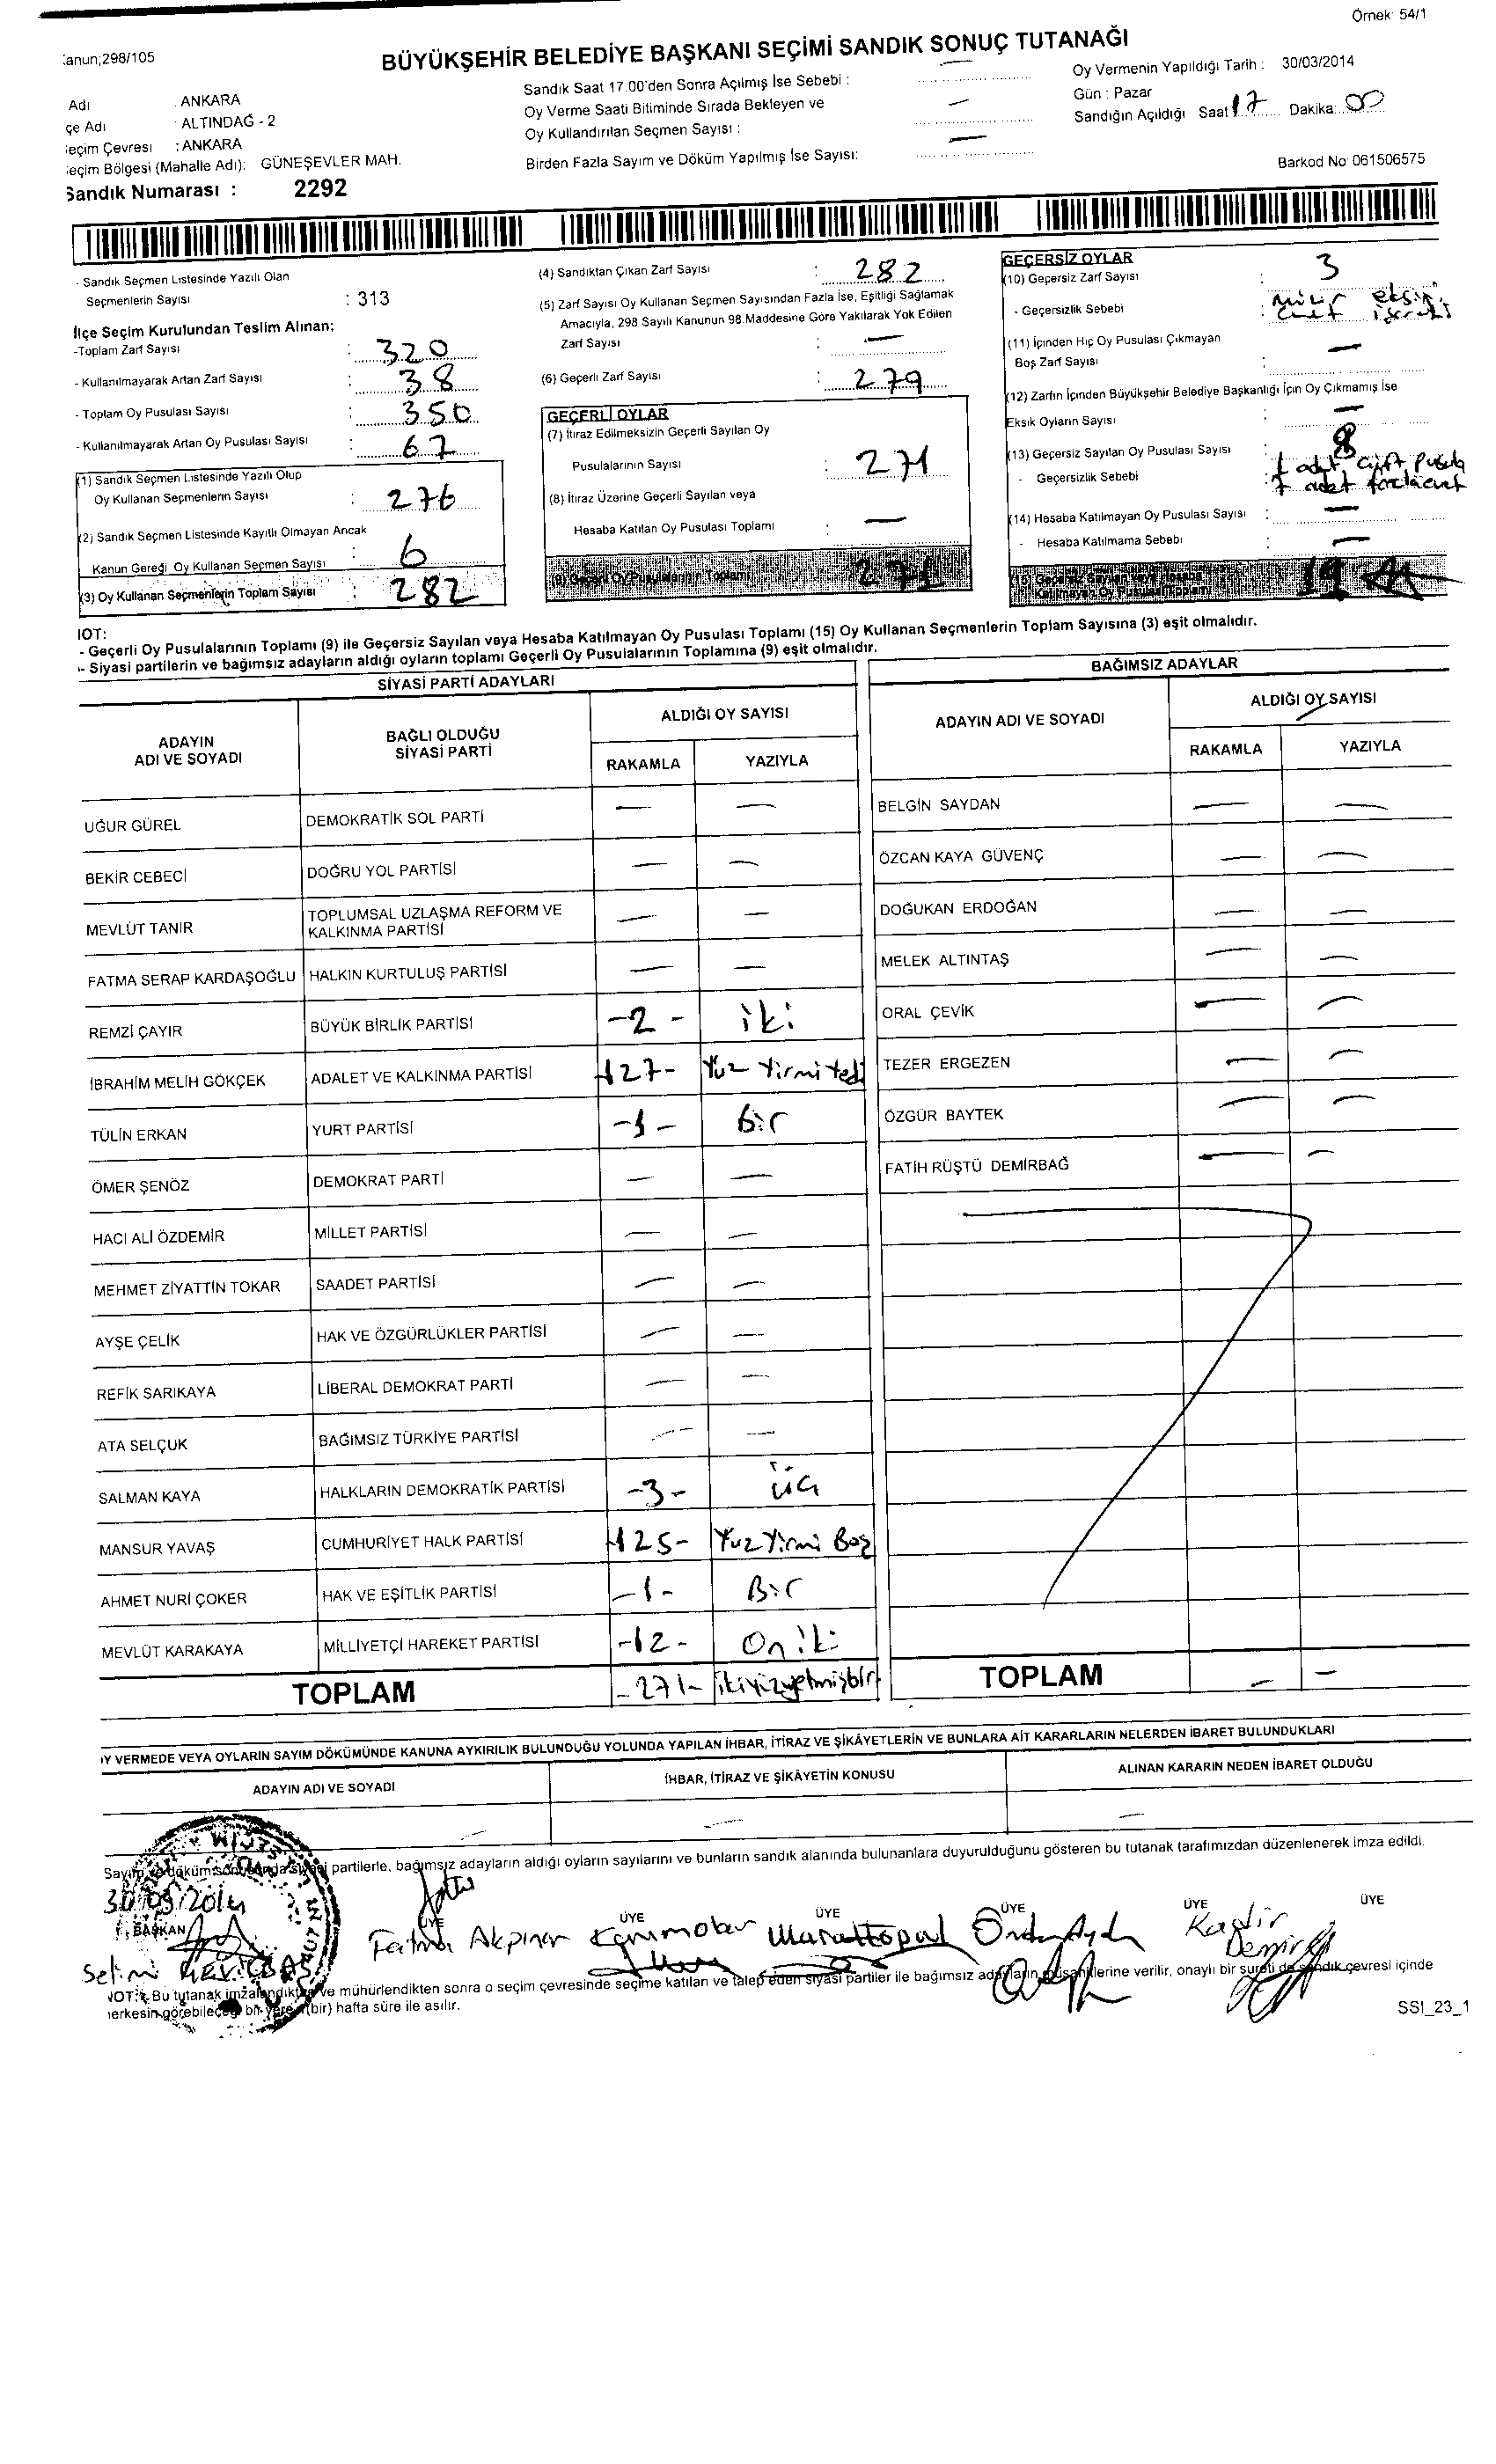 Örnek: 54/1
:anun;298/105
BÜYÜKŞEHİR BELEDİYE BAŞKANI SEÇİMİ SANDIK SONUÇ TUTANAĞI
Adı : ANKARA
çe Adı : ALTINDAĞ - 2
eçim Çevresi : ANKARA
eçim Bölgesi (Mahalle Adı): GÜNEŞEVLER MAH.
Sandık Numarası : 2292
Sandık Saat 17.00'den Sonra Açılmış İse Sebebi : —
Oy Verme Saati Bitiminde Sırada Bekleyen ve
Oy Kullandırılan Seçmen Sayısı : —
Birden Fazla Sayım ve Döküm Yapılmış İse Sayısı: —
Oy Vermenin Yapıldığı Tarih : 30/03/2014
Gün : Pazar
Sandığın Açıldığı Saat 17 Dakika: 00
Barkod No: 061506575
- Sandık Seçmen Listesinde Yazılı Olan
Seçmenlerin Sayısı : 313
İlçe Seçim Kurulundan Teslim Alınan;
-Toplam Zarf Sayısı : 320
- Kullanılmayarak Artan Zarf Sayısı : 38
- Toplam Oy Pusulası Sayısı : 350
- Kullanılmayarak Artan Oy Pusulası Sayısı : 67
(1) Sandık Seçmen Listesinde Yazılı Olup
Oy Kullanan Seçmenlerin Sayısı : 276
(2) Sandık Seçmen Listesinde Kayıtlı Olmayan Ancak
Kanun Gereği Oy Kullanan Seçmen Sayısı : 6
(3) Oy Kullanan Seçmenlerin Toplam Sayısı : 282
(4) Sandıktan Çıkan Zarf Sayısı : 282
(5) Zarf Sayısı Oy Kullanan Seçmen Sayısından Fazla İse, Eşitliği Sağlamak
Amacıyla, 298 Sayılı Kanunun 98.Maddesine Göre Yakılarak Yok Edilen
Zarf Sayısı : —
(6) Geçerli Zarf Sayısı : 279
GEÇERLİ OYLAR
(7) İtiraz Edilmeksizin Geçerli Sayılan Oy
Pusulalarının Sayısı : 271
(8) İtiraz Üzerine Geçerli Sayılan veya
Hesaba Katılan Oy Pusulası Toplamı : —
(9) Geçerli Oy Pusulalarının Toplamı 271
GEÇERSİZ OYLAR
(10) Geçersiz Zarf Sayısı : 3
- Geçersizlik Sebebi : eksiği
(11) İçinden Hiç Oy Pusulası Çıkmayan
Boş Zarf Sayısı : —
(12) Zarfın İçinden Büyükşehir Belediye Başkanlığı İçin Oy Çıkmamış İse
Eksik Oyların Sayısı : —
(13) Geçersiz Sayılan Oy Pusulası Sayısı : 8
- Geçersizlik Sebebi : 1 adet çift pusula
7 adet fazla evet
(14) Hesaba Katılmayan Oy Pusulası Sayısı : —
- Hesaba Katılmama Sebebi : —
(15) Geçersiz Sayılan veya Hesaba
Katılmayan Oy Pusulası Toplamı
IOT:
- Geçerli Oy Pusulalarının Toplamı (9) ile Geçersiz Sayılan veya Hesaba Katılmayan Oy Pusulası Toplamı (15) Oy Kullanan Seçmenlerin Toplam Sayısına (3) eşit olmalıdır.
- Siyasi partilerin ve bağımsız adayların aldığı oyların toplamı Geçerli Oy Pusulalarının Toplamına (9) eşit olmalıdır.
SİYASİ PARTİ ADAYLARI
ADAYIN ADI VE SOYADI BAĞLI OLDUĞU SİYASİ PARTİ ALDIĞI OY SAYISI
RAKAMLA YAZIYLA
UĞUR GÜREL DEMOKRATİK SOL PARTİ — —
BEKİR CEBECİ DOĞRU YOL PARTİSİ — —
MEVLÜT TANIR TOPLUMSAL UZLAŞMA REFORM VE KALKINMA PARTİSİ — —
FATMA SERAP KARDAŞOĞLU HALKIN KURTULUŞ PARTİSİ — —
REMZİ ÇAYIR BÜYÜK BİRLİK PARTİSİ -2- iki
İBRAHİM MELİH GÖKÇEK ADALET VE KALKINMA PARTİSİ -127- Yuz Yirmi Yedi
TÜLİN ERKAN YURT PARTİSİ -1- Bir
ÖMER ŞENÖZ DEMOKRAT PARTİ — —
HACI ALİ ÖZDEMİR MİLLET PARTİSİ — —
MEHMET ZİYATTİN TOKAR SAADET PARTİSİ — —
AYŞE ÇELİK HAK VE ÖZGÜRLÜKLER PARTİSİ — —
REFİK SARIKAYA LİBERAL DEMOKRAT PARTİ — —
ATA SELÇUK BAĞIMSIZ TÜRKİYE PARTİSİ — —
SALMAN KAYA HALKLARIN DEMOKRATİK PARTİSİ -3- üç
MANSUR YAVAŞ CUMHURİYET HALK PARTİSİ -125- Yuz Yirmi Beş
AHMET NURİ ÇOKER HAK VE EŞİTLİK PARTİSİ -1- Bir
MEVLÜT KARAKAYA MİLLİYETÇİ HAREKET PARTİSİ -12- On iki
TOPLAM -271- ikiyüzyetmişbir
BAĞIMSIZ ADAYLAR
ADAYIN ADI VE SOYADI ALDIĞI OY SAYISI
RAKAMLA YAZIYLA
BELGİN SAYDAN — —
ÖZCAN KAYA GÜVENÇ — —
DOĞUKAN ERDOĞAN — —
MELEK ALTINTAŞ — —
ORAL ÇEVİK — —
TEZER ERGEZEN — —
ÖZGÜR BAYTEK — —
FATİH RÜŞTÜ DEMİRBAĞ — —
TOPLAM — —
IY VERMEDE VEYA OYLARIN SAYIM DÖKÜMÜNDE KANUNA AYKIRILIK BULUNDUĞU YOLUNDA YAPILAN İHBAR, İTİRAZ VE ŞİKÂYETLERİN VE BUNLARA AİT KARARLARIN NELERDEN İBARET BULUNDUKLARI
ADAYIN ADI VE SOYADI İHBAR, İTİRAZ VE ŞİKÂYETİN KONUSU ALINAN KARARIN NEDEN İBARET OLDUĞU
— — —
Sayım ve döküm sonucunda siyasi partilerle, bağımsız adayların aldığı oyların sayılarını ve bunların sandık alanında bulunanlara duyurulduğunu gösteren bu tutanak tarafımızdan düzenlenerek imza edildi.
30/03/2014
BAŞKAN ÜYE ÜYE ÜYE ÜYE ÜYE ÜYE
Selim Fatma Akpınar Murat Topal Önder Aydın Kadir Demir
NOT: Bu tutanak imzalandıktan ve mühürlendikten sonra o seçim çevresinde seçime katılan ve talep eden siyasi partiler ile bağımsız adayların müşahitlerine verilir, onaylı bir sureti de sandık çevresi içinde
herkesin görebileceği bir yere 1 (bir) hafta süre ile asılır.
SSI_23_1